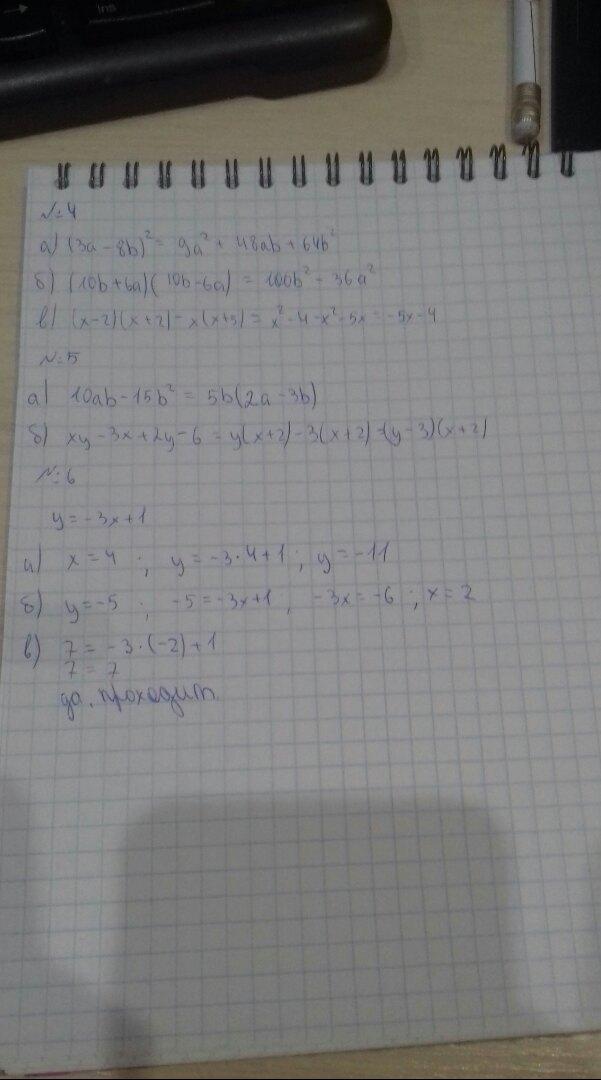 Ins
№4
а) (3a - 8b)² = 9a² + 48ab + 64b²
б) (10b+6a)(10b-6a) = 100b² - 36a²
в) (x-2)(x+2) - x(x+5) = x² - 4 - x² - 5x = -5x - 4
№5
а) 10ab - 15b² = 5b(2a - 3b)
б) xy - 3x + 2y - 6 = y(x+2) - 3(x+2) = (y-3)(x+2)
№6
y = -3x+1
а) x = 4 ; y = -3·4+1 ; y = -11
б) y = -5 ; -5 = -3x+1 ; -3x = -6 ; x = 2
в) 7 = -3·(-2)+1
7 = 7
да, проходит